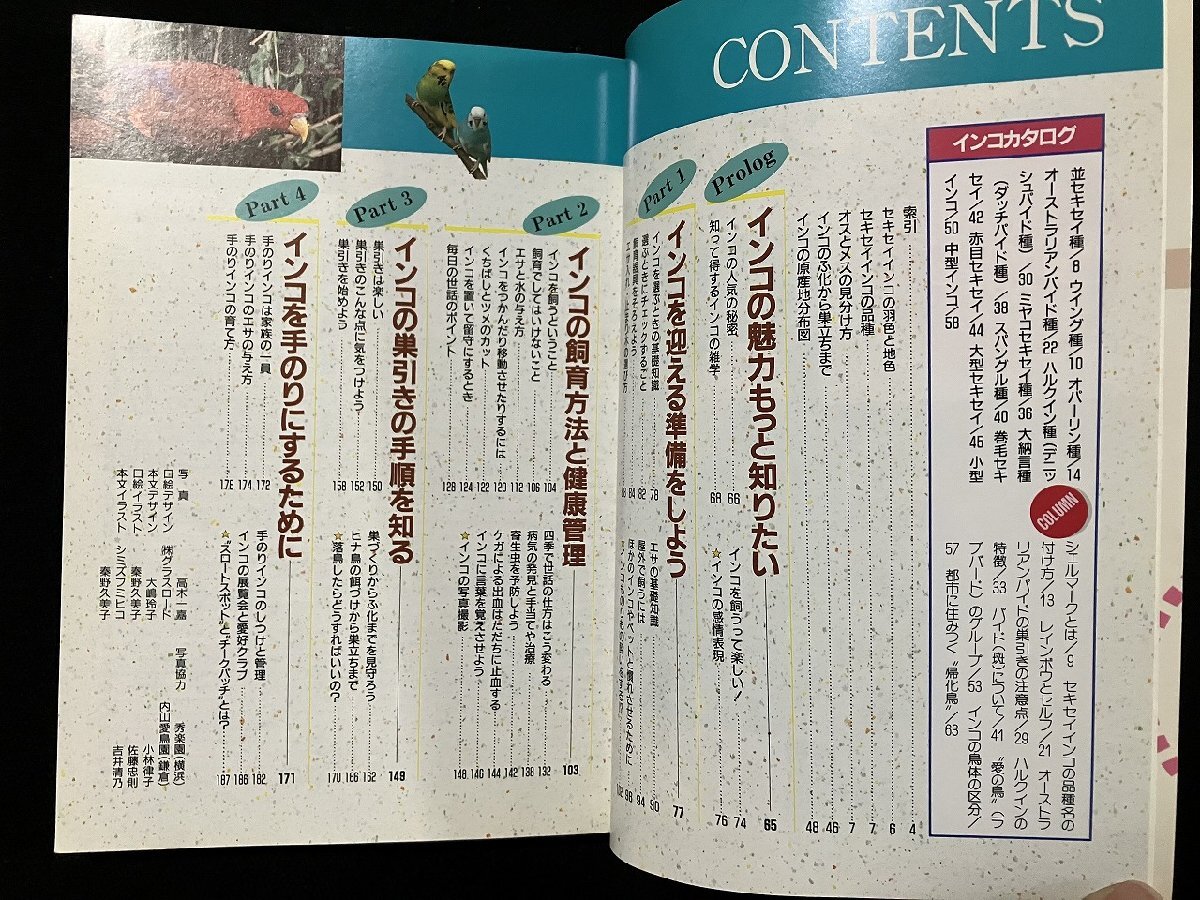 CONTENTS
インコカタログ
並セキセイ種/8 ウイング種/10 オパーリン種/14
オーストラリアンパイド種/22 ハルクイン種(デニッ
シュパイド種)/30 ミヤコセキセイ種/36 大納言種
(ダッチパイド種)/38 スパングル種/40 巻毛セキ
セイ/42 赤目セキセイ/44 大型セキセイ/46 小型
インコ/50 中型インコ/58
COLUMN
シェルマークとは/9 セキセイインコの品種名の
付け方/13 レインボウとヒルフ/21 オースト
リアンパイドの巣引きの注意点/29 ハルクインの
特徴/33 パイド(斑)について/41 “愛の鳥”(ラ
ブバード)のグループ/53 インコの鳥体の区分/
57 都市に住みつく“帰化鳥”/63
索引 4
セキセイインコの羽色と地色 6
セキセイインコの品種 7
オスとメスの見分け方 7
インコのふ化から巣立ちまで 46
インコの原産地分布図 48
Prolog
インコの魅力もっと知りたい 65
インコの人気の秘密 66
知って得するインコの雑学 68
インコを飼うって楽しい! 74
★インコの感情表現 76
Part 1
インコを迎える準備をしよう 77
インコを選ぶときの基礎知識 78
選ぶときにチェックすること 82
飼育器具をそろえよう 84
エサの基礎知識 90
屋外で飼うには 94
ほかのインコやペットと慣れさせるために 98
Part 2
インコの飼育方法と健康管理 103
インコを飼うということ 104
飼育でしてはいけないこと 106
エサと水の与え方 112
インコをつかんだり移動させたりするには 120
くちばしとツメのカット 122
インコを置いて留守にするとき 124
毎日の世話のポイント 128
四季で世話の仕方はこう変わる 132
病気の発見と手当てや治療 138
寄生虫を予防しよう 142
ケガによる出血はただちに止血する 144
インコに言葉を覚えさせよう 146
★インコの写真撮影 148
Part 3
インコの巣引きの手順を知る 149
巣引きは楽しい 150
巣引きのこんな点に気をつけよう 152
巣引きを始めよう 158
巣づくりからふ化までを見守ろう 162
ヒナ鳥の餌づけから巣立ちまで 166
★落鳥したらどうすればいいの? 170
Part 4
インコを手のりにするために 171
手のりインコは家族の一員 172
手のりインコのエサの与え方 174
手のりインコの育て方 178
手のりインコのしつけと管理 182
インコの展覧会と愛好クラブ 186
★“スロートスポット”と“チークパッチ”とは? 187
写真 高木一嘉
口絵デザイン ㈱グラスロード
本文デザイン 大嶋玲子
口絵イラスト 秦野久美子
本文イラスト シミズフミヒコ
秦野久美子
写真協力 秀楽園(横浜)
内山愛鳥園(鎌倉)
小林律子
佐藤忠則
吉井清乃